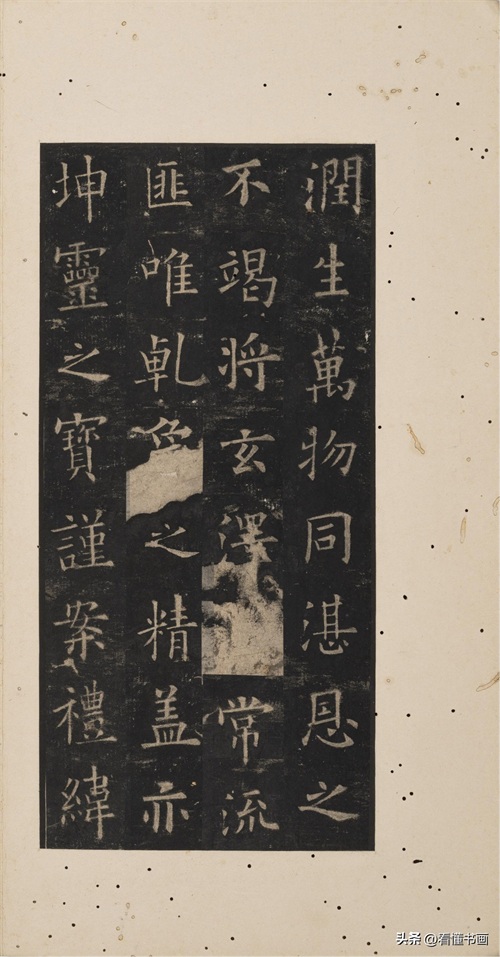 潤生萬物同湛恩之
不竭将玄澤常流
匪唯乹之精盖亦
坤靈之寶謹案禮緯
头条 @看懂书画